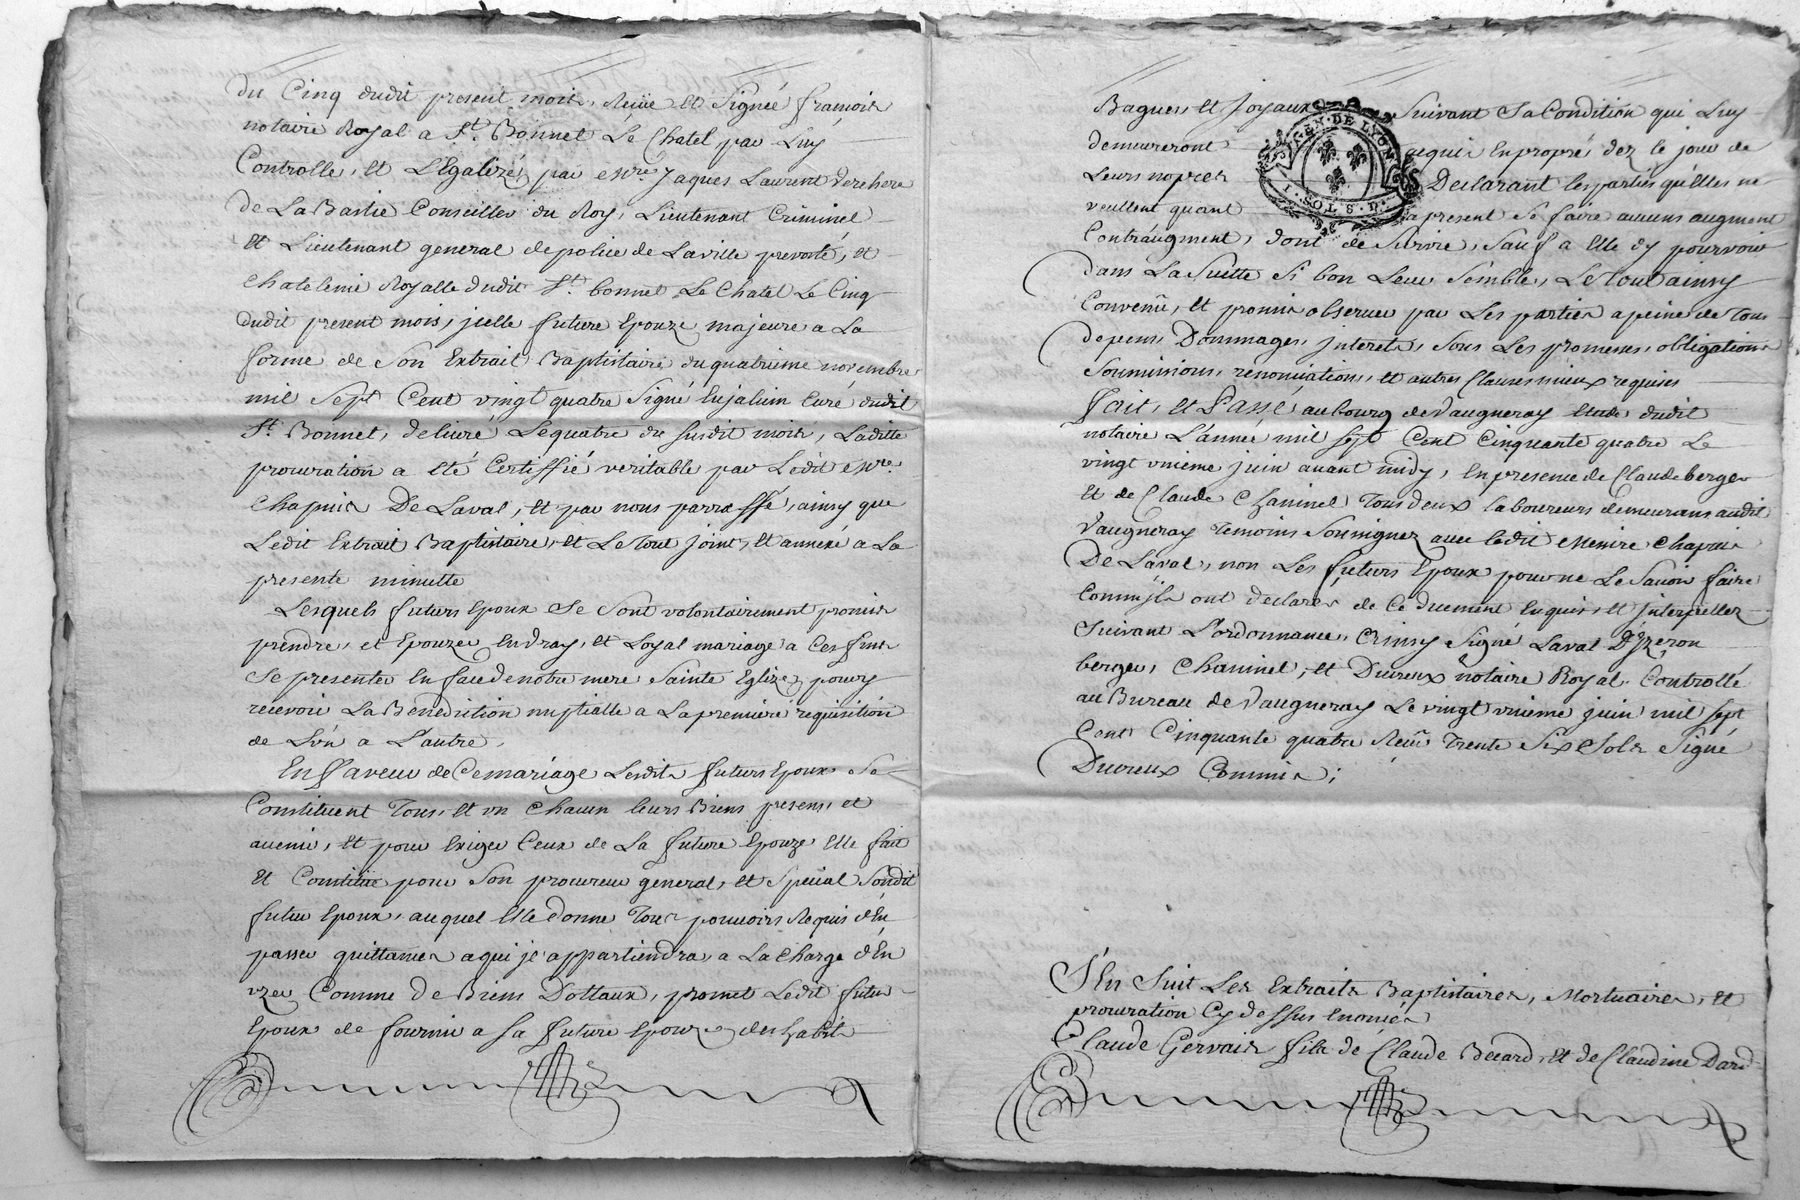 du Cinq dudit present mois, Reçüe et Signée françois
notaire Royal a St. Bonnet Le Chatel, par Luy
Controlle, et Légalizé, par Jaques Laurent
de La Bastie Conseiller du Roy, Lieutenant Criminel
et Lieutenant general de police de La ville prevoté, et
chatelenie Royalle dudit St. bonnet Le Chatel Le Cinq
dudit present mois, jcelle future Epouze majeure a La
forme de Son Extrait Baptistaire du quatrieme novembre
mil Sept Cent vingt quatre Signé Curé dudit
St. Bonnet, delivré Le quatre du susdit mois, Laditte
procuration a été Certiffié veritable par Ledit
Chapuis De Laval, et par nous parraffé, ainsy que
Ledit Extrait Baptistaire, et Le Tout joint, et annexé a La
presente minutte
Lesquels futurs Epoux Se Sont volontairement promis
prendre, et Epouzer En vray, et Loyal mariage a Ces fins
Se presenter En face de notre mere Sainte Eglize, pour y
recevoir La Bénédiction nuptialle a La premiere requisition
de L'un a L'autre.
En faveur de Ce mariage Lesdits futurs Epoux Se
Constituent Tous, et un chacun leurs Biens presens, et
avenir, et pour Exiger Ceux de La future Epouze Elle fait
et Constitüe pour Son procureur general, et Spécial Sondit
futur Epoux, auquel Elle donne Tous pouvoirs Requis d'En
passer quittances a qui jl appartiendra, a La Charge d'En
uzer Comme de Biens Dottaux, promet Ledit futur
Epoux de fournir a Sa future Epouze, des habits
Bagues, et Joyaux Suivant Sa Condition qui Luy
demeureront acquis En propre dez le jour de
Leurs nopces Declarant les parties qu'Elles ne
veullent quant a present Se faire aucuns augment
Contráugment, dont de Survie, Sauf a Elle d'y pourvoir
dans La Suitte Si bon Leur Semble, Le Tout ainsy
Convenü, et promis observer par Les parties a peine de Tous
depens, Dommages, jnterets, Sous Les promesses, obligations
Soumissions, renonciations, et autres Clauses mieux requises
Fait, et Passé, au bourg de Vaugneray Etude dudit
notaire L'année mil Sept Cent Cinquante quatre Le
vingt unieme juin avant midy, En presence de Claude berger
et de Claude Chaninel Tous deux laboureurs demeurans audit
Vaugneray Temoins Soussignez avec ledit Messire Chapuis
De Laval, non Les futurs Epoux pour ne Le Savoir faire
Comm'jls ont declarés de Ce Duement Enquis, et jnterpellez
Suivant L'ordonnance, Signé Laval D'Ezeron
berger, Chaninel, et Duvreux notaire Royal, Controllé
au Bureau de Vaugneray Le vingt unieme juin mil Sept
Cent Cinquante quatre Reçü Trente Six Sols Signé
Duvreux Commis;
GEN. DE LYON
S'En Suit Les Extraits Baptistaires, Mortuaires, et
procuration Cy dessus Enoncés
Claude Gervais fils de Claude Berard, et de Claudine Dard